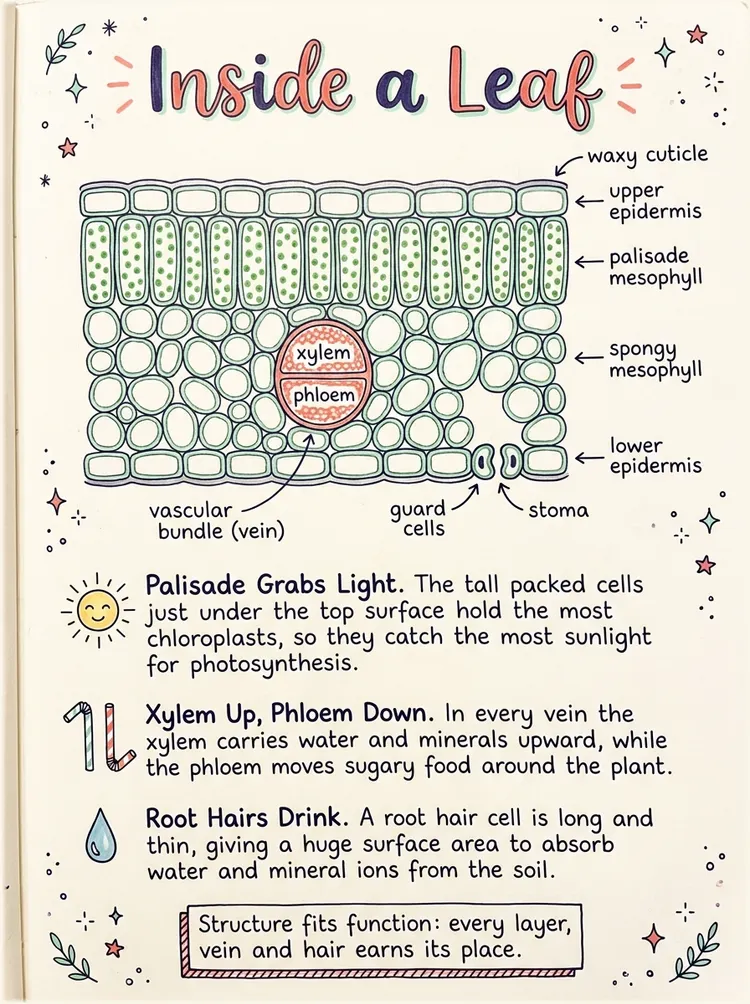 Inside a Leaf
waxy cuticle
upper
epidermis
palisade
mesophyll
xylem
phloem
spongy
mesophyll
lower
epidermis
vascular
bundle (vein)
guard
cells
stoma
Palisade Grabs Light. The tall packed cells
just under the top surface hold the most
chloroplasts, so they catch the most sunlight
for photosynthesis.
Xylem Up, Phloem Down. In every vein the
xylem carries water and minerals upward, while
the phloem moves sugary food around the plant.
Root Hairs Drink. A root hair cell is long and
thin, giving a huge surface area to absorb
water and mineral ions from the soil.
Structure fits function: every layer,
vein and hair earns its place.